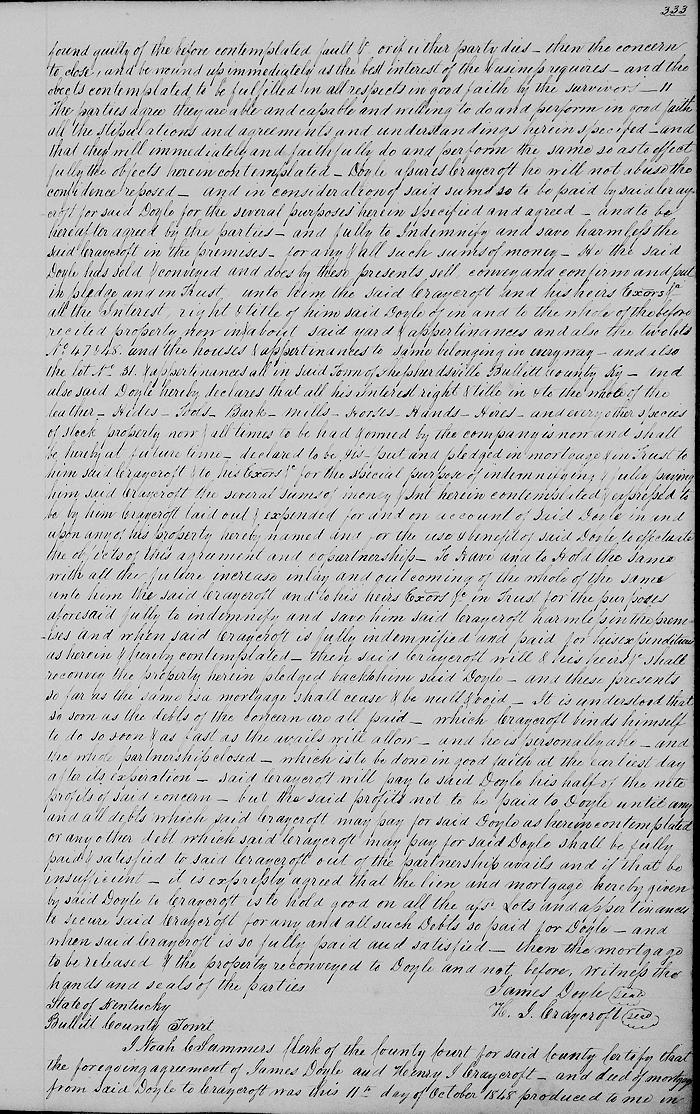 333
found guilty of the before contemplated fault &c. or if either party dies — then the concern
to close, and be wound up immediately as the best interest of the business requires — and the
objects contemplated to be fulfilled in all respects in good faith by the survivors — 11
The parties agree they are able and capable and willing to do and perform in good faith
all the stipulations and agreements and understandings herein specified — and
that they will immediately and faithfully do and perform the same so as to effect
fully the objects herein contemplated — Doyle assures Craycroft he will not abuse the
confidence reposed — and in consideration of said sums so to be paid by said Cray-
croft for said Doyle for the several purposes herein specified and agreed — and to be
hereafter agreed by the parties — and fully to Indemnify and save harmless the
said Craycroft in the premises — for any & all such sums of money — He the said
Doyle has sold & conveyed and does by these presents sell convey and confirm and put
in pledge and in Trust unto him the said Craycroft and his heirs Exors &c
all the Interest, right & title of him said Doyle of in and to the whole of the before
recited property now in & about said yard & appertinances and also the two lots
No 47 & 48. and the houses & appertinances to same belonging in every way — and also
the lot No 31. & appertinances all in said Town of Shepherdsville Bullitt County Ky — and
also said Doyle hereby declares that all his interest right & title in & to the whole of the
leather — Hides — Tools — Bark — Mills — Horses — Hands — Hores — and every other species
of stock property now & all times to be had & owned by the company is now and shall
be hereby at future time — declared to be put and pledged in mortgage & in Trust to
him said Craycroft & to his Exors &c for the special purpose of indemnifying & fully paying
him said Craycroft the several sums of money & Int herein contemplated & expressed to
be by him Craycroft laid out & expended for and on account of Said Doyle in and
upon any of his property hereby named and for the use & benefit of said Doyle, to effectuate
the objects of this agreement and copartnership — To Have and to Hold the same
with all the future increase inlay and outcoming of the whole of the same
unto him the said Craycroft and to his heirs Exors &c in Trust for the purposes
aforesaid fully to indemnify and save him said Craycroft harmless in the prem-
ises and when said Craycroft is fully indemnified and paid for his expenditure
as herein & hereby contemplated — then said Craycroft will & his heirs &c shall
reconvey the property herein pledged back to him said Doyle — and these presents
so far as the same is a mortgage shall cease & be null & void — It is understood that
so soon as the debts of the concern are all paid — which Craycroft binds himself
to do so soon & as fast as the avails will allow — and he is personally able — and
the whole partnership closed — which is to be done in good faith at the earliest day
after its expiration — said Craycroft will pay to said Doyle his half of the nete
profits of said concern — but the said profits not to be paid to Doyle until any
and all debts which said Craycroft may pay for said Doyle as herein contemplated
or any other debt which said Craycroft may pay for said Doyle shall be fully
paid & satisfied to said Craycroft out of the partnership avails and if that be
insufficient — it is expressly agreed that the lien and mortgage hereby given
by said Doyle to Craycroft is to hold good on all the afsd Lots and appertinances
to secure said Craycroft for any and all such Debts so paid for Doyle — and
when said Craycroft is so fully paid and satisfied — then the mortgage
to be released & the property reconveyed to Doyle and not before, Witness the
hands and seals of the parties
James Doyle Seal
State of Kentucky
H. J. Craycroft Seal
Bullitt County Towit
I Noah C Summers Clerk of the County Court for said County Certify that
the foregoing agreement of James Doyle and Henry J Craycroft — and deed of mortgage
from said Doyle to Craycroft was this 11th day of October 1848 produced to me in